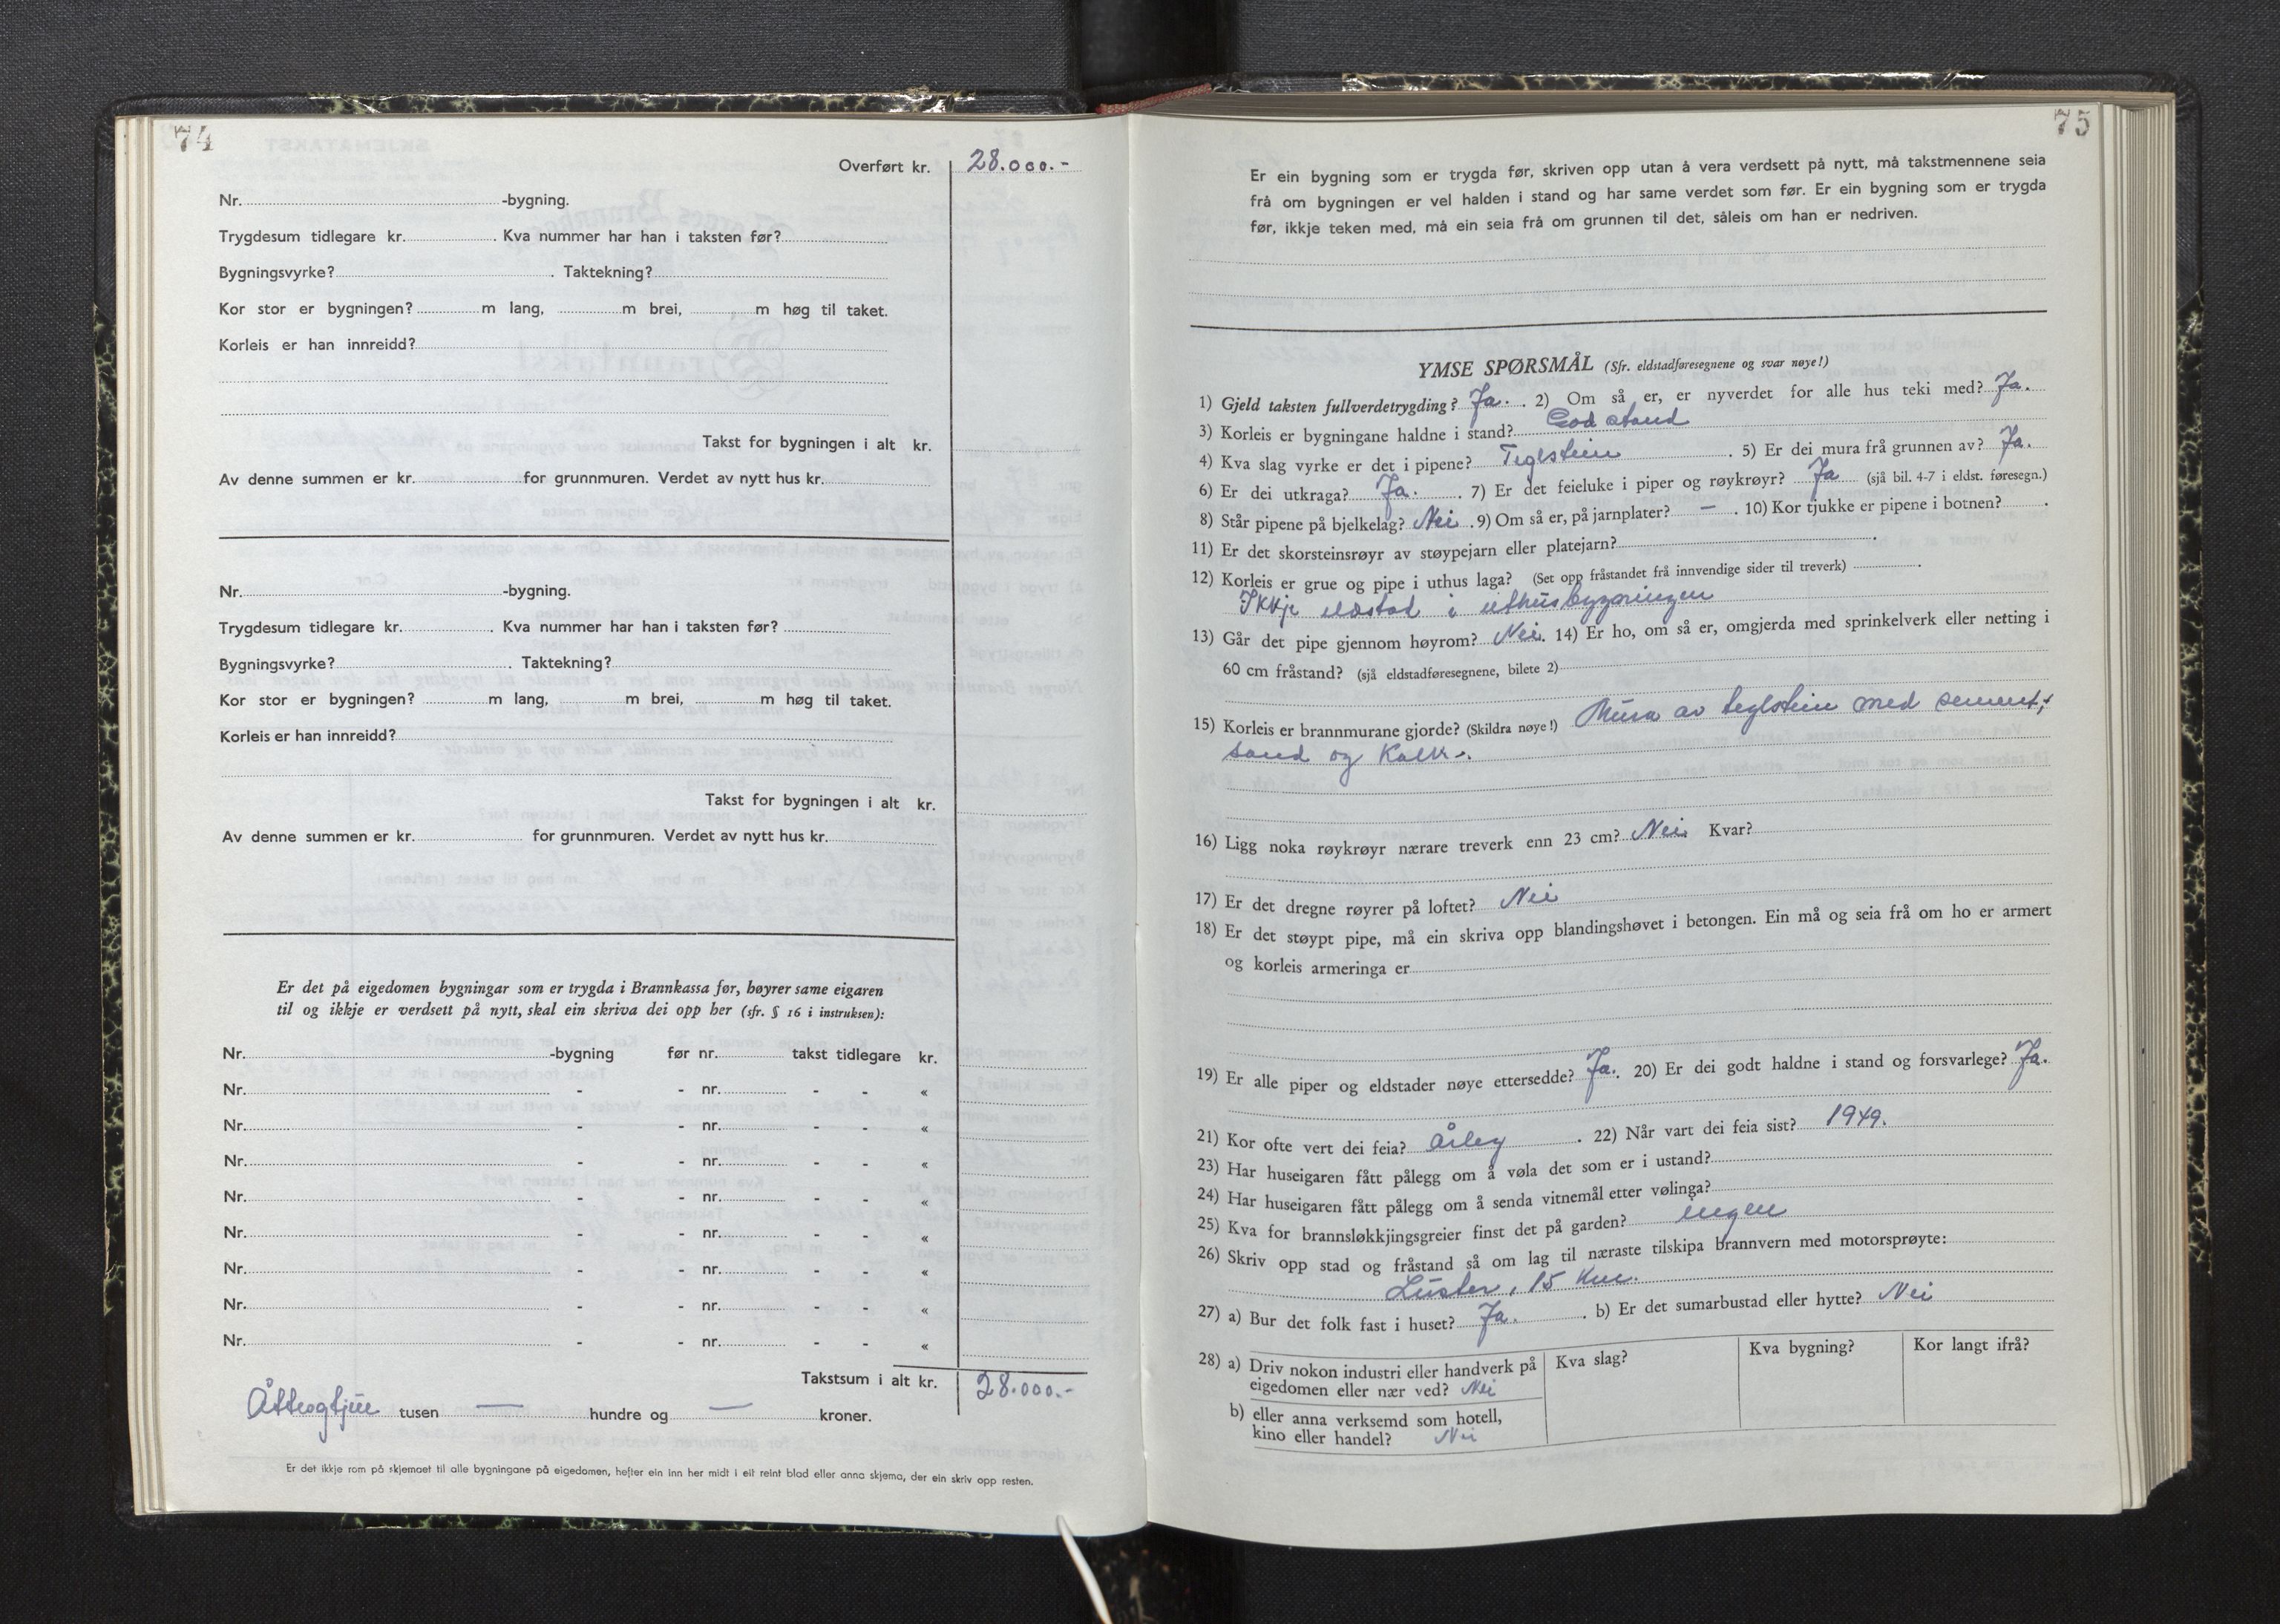 74
Overført kr. 28.000.-
Nr. -bygning.
Trygdesum tidlegare kr. . Kva nummer har han i taksten før?
Bygningsvyrke? . Taktekning?
Kor stor er bygningen? m lang, m brei, m høg til taket.
Korleis er han innreidd?
Takst for bygningen i alt kr.
Av denne summen er kr. for grunnmuren. Verdet av nytt hus kr.
Nr. -bygning.
Trygdesum tidlegare kr. . Kva nummer har han i taksten før?
Bygningsvyrke? . Taktekning?
Kor stor er bygningen? m lang, m brei, m høg til taket.
Korleis er han innreidd?
Takst for bygningen i alt kr.
Av denne summen er kr. for grunnmuren. Verdet av nytt hus kr.
Er det på eigedomen bygningar som er trygda i Brannkassa før, høyrer same eigaren
til og ikkje er verdsett på nytt, skal ein skriva dei opp her (sfr. § 16 i instruksen):
Nr. -bygning før nr. takst tidlegare kr.
Nr. - - nr. - - «
Nr. - - nr. - - «
Nr. - - nr. - - «
Nr. - - nr. - - «
Nr. - - nr. - - «
Nr. - - nr. - - «
Nr. - - nr. - - «
Nr. - - nr. - - «
Takstsum i alt kr. 28.000.-
Åtteogtjue tusen — hundre og — kroner.
Er det ikkje rom på skjemaet til alle bygningane på eigedomen, hefter ein inn her midt i eit reint blad eller anna skjema, der ein skriv opp resten.
75
Er ein bygning som er trygda før, skriven opp utan å vera verdsett på nytt, må takstmennene seia
frå om bygningen er vel halden i stand og har same verdet som før. Er ein bygning som er trygda
før, ikkje teken med, må ein seia frå om grunnen til det, såleis om han er nedriven.
YMSE SPØRSMÅL (Sfr. eldstadføresegnene og svar nøye!)
1) Gjeld taksten fullverdetrygding? Ja. . 2) Om så er, er nyverdet for alle hus teki med? Ja.
3) Korleis er bygningane haldne i stand? God stand
4) Kva slag vyrke er det i pipene? Teglstein . 5) Er dei mura frå grunnen av? Ja.
6) Er dei utkraga? Ja. . 7) Er det feieluke i piper og røykrøyr? Ja (sjå bil. 4-7 i eldst. føresegn.)
8) Står pipene på bjelkelag? Nei . 9) Om så er, på jarnplater? — . 10) Kor tjukke er pipene i botnen? .
11) Er det skorsteinsrøyr av støypejarn eller platejarn? .
12) Korleis er grue og pipe i uthus laga? (Set opp fråstandet frå innvendige sider til treverk) .
Ikkje eldstad i uthusbygningen
13) Går det pipe gjennom høyrom? Nei. 14) Er ho, om så er, omgjerda med sprinkelverk eller netting i
60 cm fråstand? (sjå eldstadføresegnene, bilete 2)
15) Korleis er brannmurane gjorde? (Skildra nøye!) Mura av teglstein med sement,
sand og Kalk.
16) Ligg noka røykrøyr nærare treverk enn 23 cm? Nei. Kvar?
17) Er det dregne røyrer på loftet? Nei
18) Er det støypt pipe, må ein skriva opp blandingshøvet i betongen. Ein må og seia frå om ho er armert
og korleis armeringa er
19) Er alle piper og eldstader nøye ettersedde? Ja. 20) Er dei godt haldne i stand og forsvarlege? Ja.
21) Kor ofte vert dei feia? Årleg . 22) Når vart dei feia sist? 1949.
23) Har huseigaren fått pålegg om å vøla det som er i ustand?
24) Har huseigaren fått pålegg om å senda vitnemål etter vølinga?
25) Kva for brannsløkkjingsgreier finst det på garden? ingen
26) Skriv opp stad og fråstand så om lag til næraste tilskipa brannvern med motorsprøyte:
Luster, 15 Km.
27) a) Bur det folk fast i huset? Ja. . b) Er det sumarbustad eller hytte? Nei
28) a) Driv nokon industri eller handverk på Kva slag? Kva bygning? Kor langt ifrå?
eigedomen eller nær ved? Nei
b) eller anna verksemd som hotell,
kino eller handel? Nei